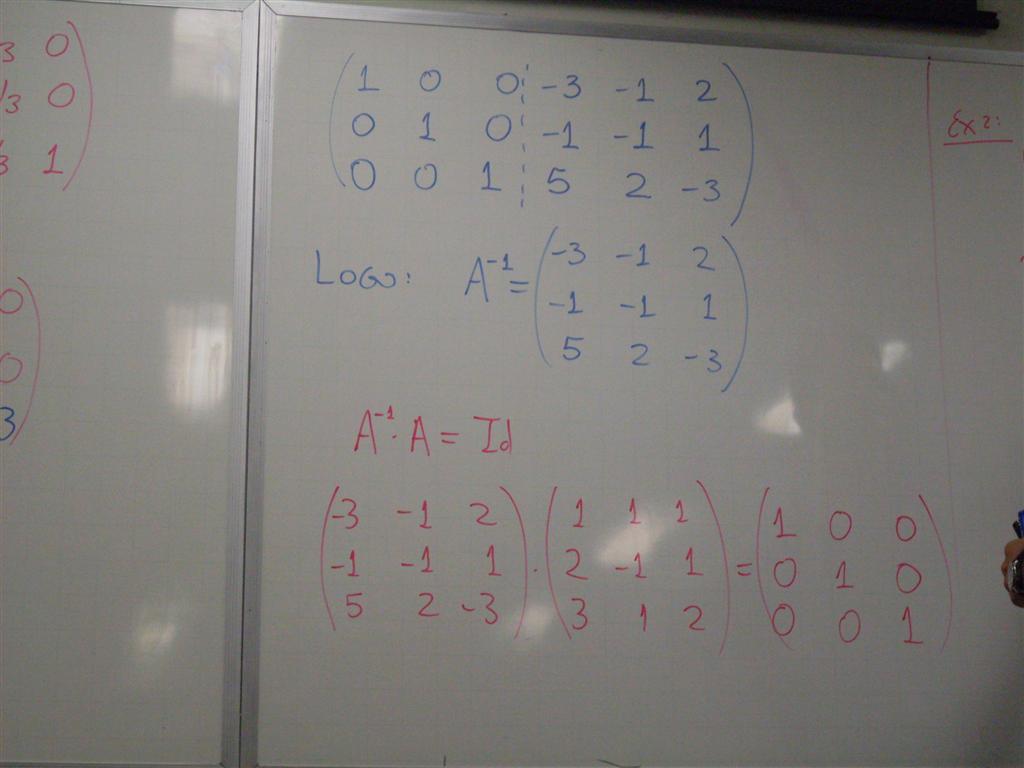 3 0
/3 0
/3 1
0
0
3
1 0 0 -3 -1 2
0 1 0 -1 -1 1
0 0 1 5 2 -3
Logo: A⁻¹ =
-3 -1 2
-1 -1 1
5 2 -3
A⁻¹ . A = Id
-3 -1 2 1 1 1 1 0 0
-1 -1 1 . 2 -1 1 = 0 1 0
5 2 -3 3 1 2 0 0 1
Ex 2: